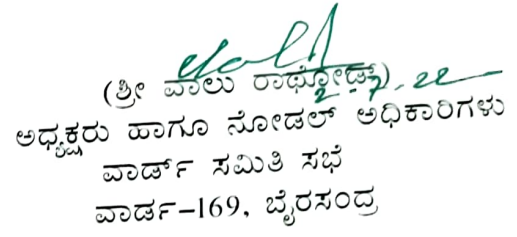 (ಶ್ರೀ ವಾಲು ರಾಥೋಡ್)
2.7.22
ಅಧ್ಯಕ್ಷರು ಹಾಗೂ ನೋಡಲ್ ಅಧಿಕಾರಿಗಳು
ವಾರ್ಡ್ ಸಮಿತಿ ಸಭೆ
ವಾರ್ಡ-169, ಬೈರಸಂದ್ರ